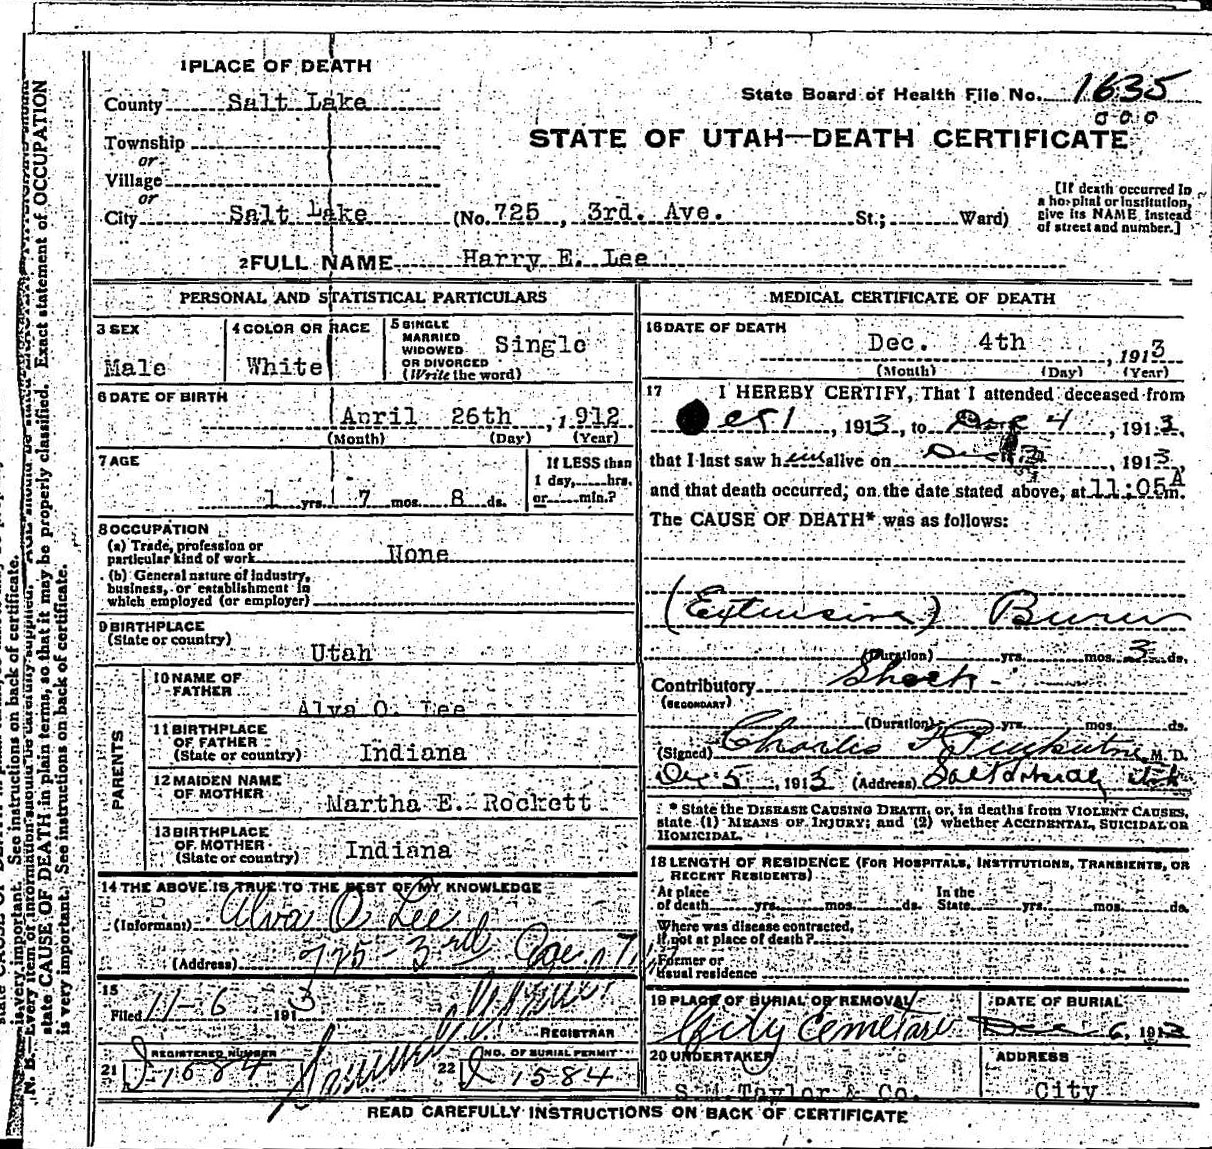 1 PLACE OF DEATH
County Salt Lake
State Board of Health File No. 1635
STATE OF UTAH—DEATH CERTIFICATE
Township
or
Village
or
City Salt Lake (No. 725, 3rd. Ave. St.; Ward)
[If death occurred in
a hospital or institution,
give its NAME instead
of street and number.]
2 FULL NAME Harry E. Lee
PERSONAL AND STATISTICAL PARTICULARS
3 SEX
Male
4 COLOR OR RACE
White
5 SINGLE
MARRIED
WIDOWED
OR DIVORCED
(Write the word)
Single
6 DATE OF BIRTH
April 26th, 1912
(Month) (Day) (Year)
7 AGE
1 yrs. 7 mos. 8 ds.
If LESS than
1 day, hrs.
or min.?
8 OCCUPATION
(a) Trade, profession or
particular kind of work None
(b) General nature of industry,
business, or establishment in
which employed (or employer)
9 BIRTHPLACE
(State or country)
Utah
PARENTS
10 NAME OF
FATHER
Alva O. Lee
11 BIRTHPLACE
OF FATHER
(State or country) Indiana
12 MAIDEN NAME
OF MOTHER
Martha E. Rockett
13 BIRTHPLACE
OF MOTHER
(State or country) Indiana
14 THE ABOVE IS TRUE TO THE BEST OF MY KNOWLEDGE
(Informant) Alva O Lee
(Address) 725-3rd Ave
15
Filed 11-6 1913
REGISTRAR
21 REGISTERED NUMBER
1584
22 NO. OF BURIAL PERMIT
1584
MEDICAL CERTIFICATE OF DEATH
16 DATE OF DEATH
Dec. 4th, 1913
(Month) (Day) (Year)
17 I HEREBY CERTIFY, That I attended deceased from
1, 1913, to Dec 4, 1913,
that I last saw him alive on Dec, 1913,
and that death occurred, on the date stated above, at 11:05 A m.
The CAUSE OF DEATH* was as follows:
(Extensive) Burns
(Duration) yrs. mos. 3 ds.
Contributory Shock
(SECONDARY)
(Duration) yrs. mos. ds.
(Signed) Charles F. M. D.
Dec 5, 1913 (Address) Salt Lake, Utah
* State the DISEASE CAUSING DEATH, or, in deaths from VIOLENT CAUSES,
state (1) MEANS OF INJURY; and (2) whether ACCIDENTAL, SUICIDAL OR
HOMICIDAL.
18 LENGTH OF RESIDENCE (FOR HOSPITALS, INSTITUTIONS, TRANSIENTS, OR
RECENT RESIDENTS)
At place
of death yrs. mos. ds.
In the
State yrs. mos. ds.
Where was disease contracted,
if not at place of death?
Former or
usual residence
19 PLACE OF BURIAL OR REMOVAL
City Cemetary
DATE OF BURIAL
Dec 6, 1913
20 UNDERTAKER
S. M. Taylor & Co.
ADDRESS
City
READ CAREFULLY INSTRUCTIONS ON BACK OF CERTIFICATE
N. B.—Every item of information should be carefully supplied. AGE should be
state CAUSE OF DEATH in plain terms, so that it may be properly classified. Exact statement of OCCUPATION
is very important. See instructions on back of certificate.